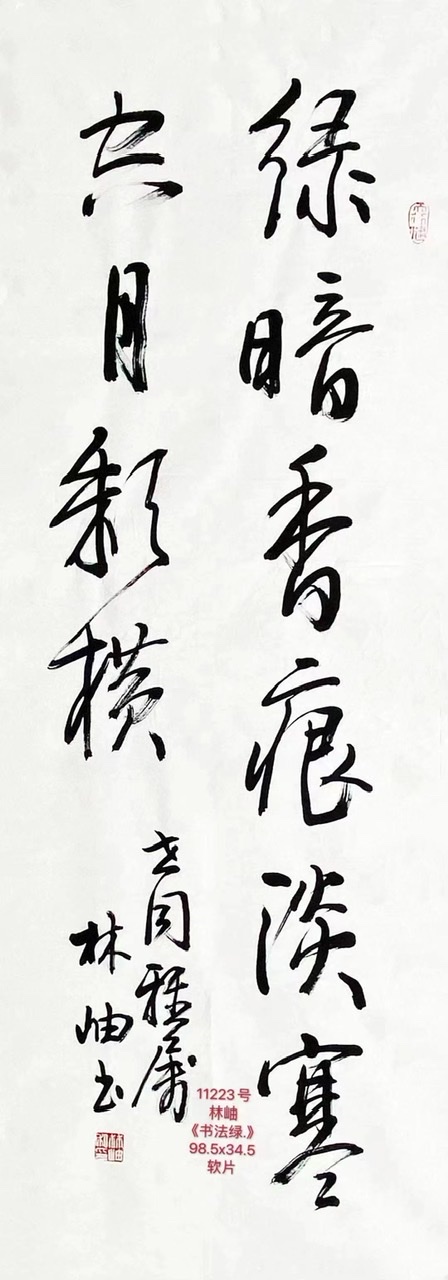 绿暗香痕淡寒
空月影横
同雅属
林岫书
11223号
林岫
《书法绿.》
98.5x34.5
软片